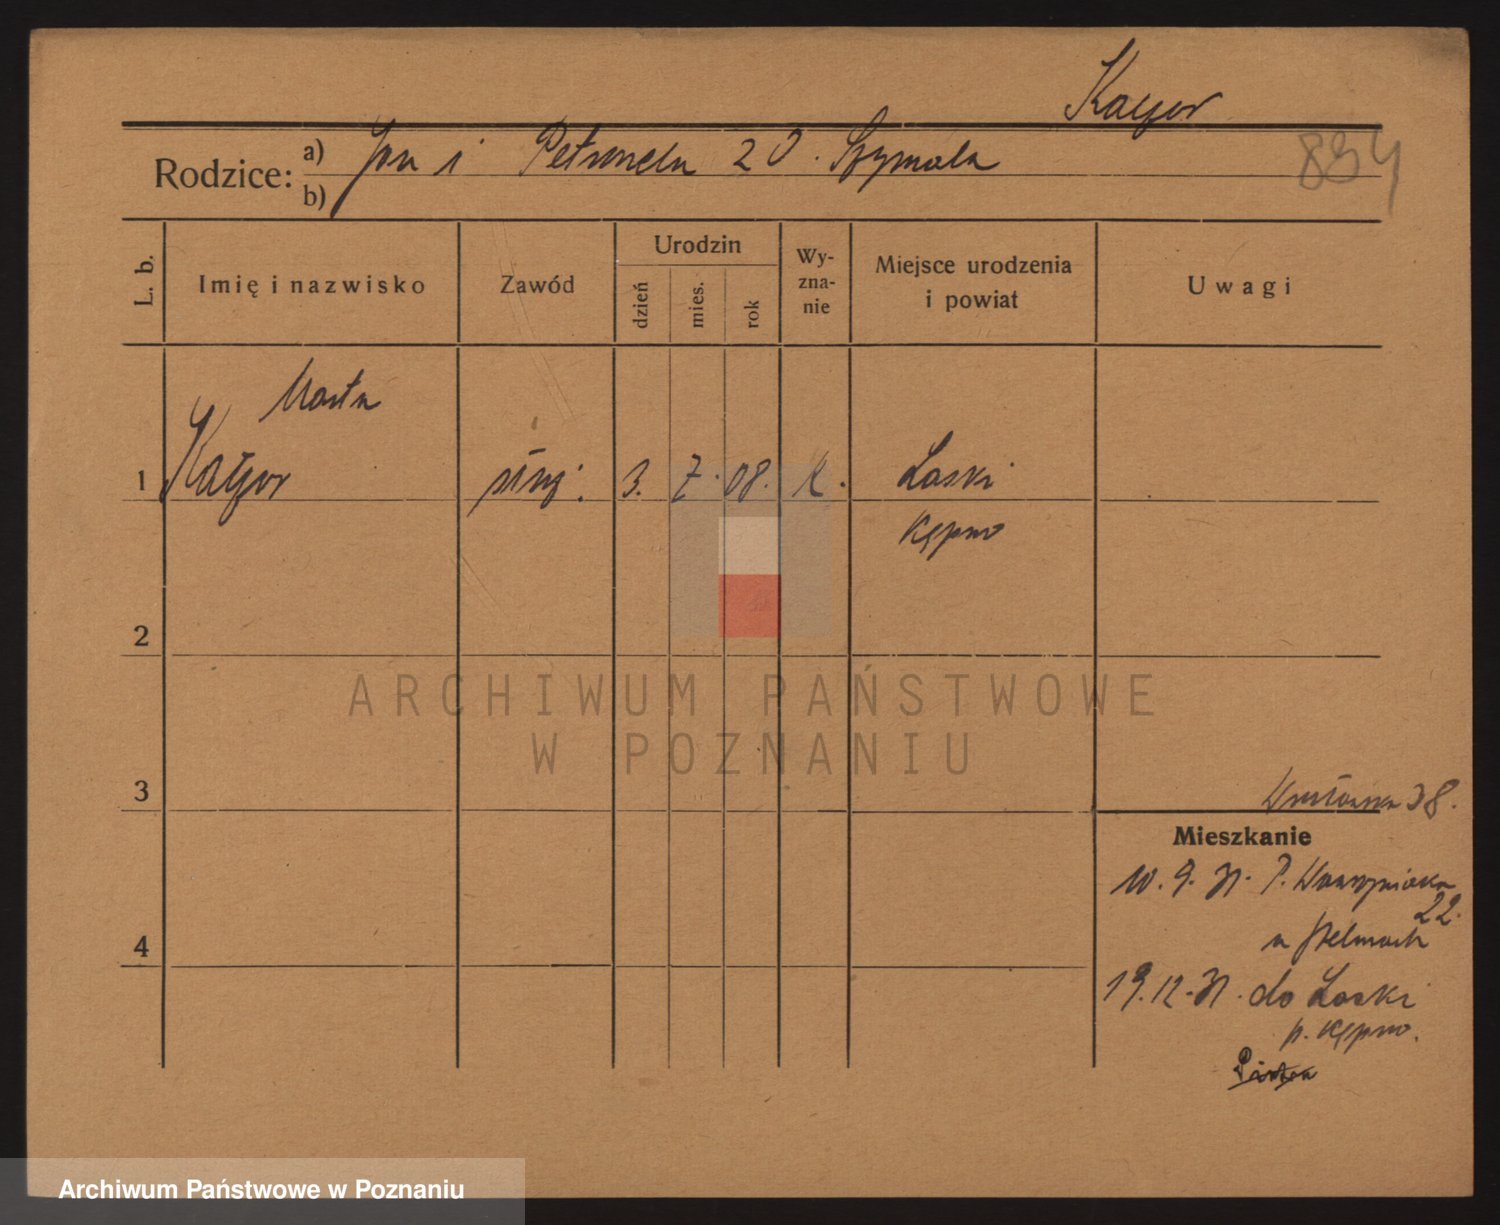 Kaczor
894
Rodzice: a) Jan i Petronela z d. Szymala
b)
L. b.
Imię i nazwisko
Zawód
Urodzin
dzień
mies.
rok
Wy-
zna-
nie
Miejsce urodzenia
i powiat
Uwagi
Marta
1 Kaczor służ. 3. 7. 08. k. Laski
Kępno
2
ARCHIWUM PAŃSTWOWE
W POZNANIU
3
38.
Mieszkanie
10. 9. 31. P. Wawrzyniaka
22.
u Stelmach
19. 12. 31. do Laski
p. Kępno.
Archiwum Państwowe w Poznaniu
4